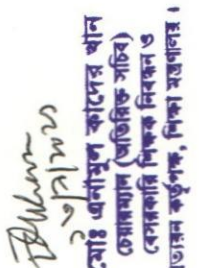 মোঃ এনামুল কাদের খান
চেয়ারম্যান (অতিরিক্ত সচিব)
বেসরকারি শিক্ষক নিবন্ধন ও
প্রত্যয়ন কর্তৃপক্ষ, শিক্ষা মন্ত্রণালয়।